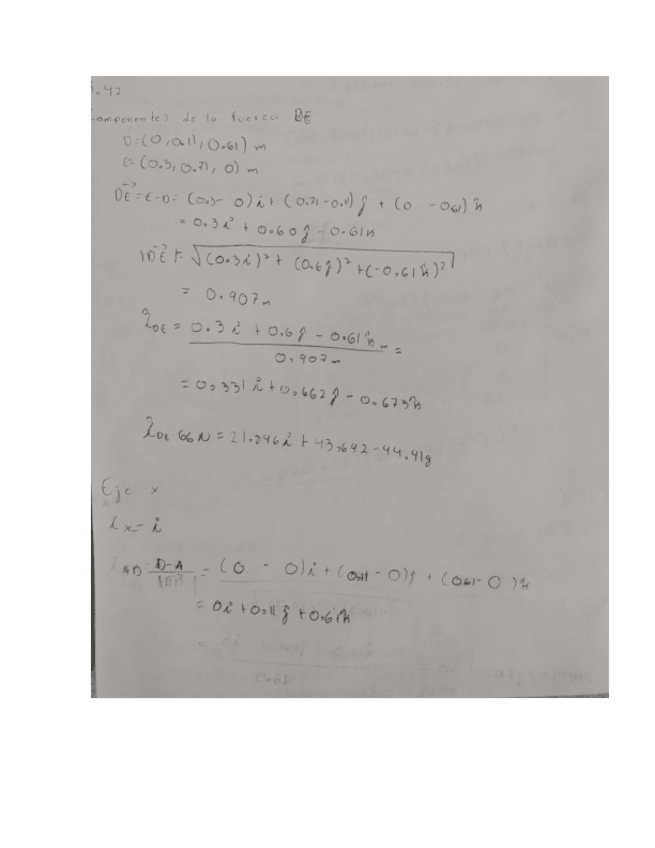 .47
Componentes de la fuerza DE
D=(0,0.11,0.61) m
E=(0.3,0.71,0) m
DE = E-D = (0.3- 0) i + (0.71-0.11) j + (0 -0.61) k
= 0.3 i + 0.60 j - 0.61 k
|DE| = √(0.3 i)² + (0.6 j)² + (-0.61 k)²
= 0.907 m
λDE = 0.3 i + 0.6 j - 0.61 k m =
0.907 m
= 0.331 i + 0.662 j - 0.673 k
λDE 66 N = 21.846 i + 43.692 - 44.41 g
Eje x
λx = i
λAD = D-A = (0 - 0) i + (0.11 - 0) j + (0.61 - 0) k
= 0 i + 0.11 j + 0.61 k